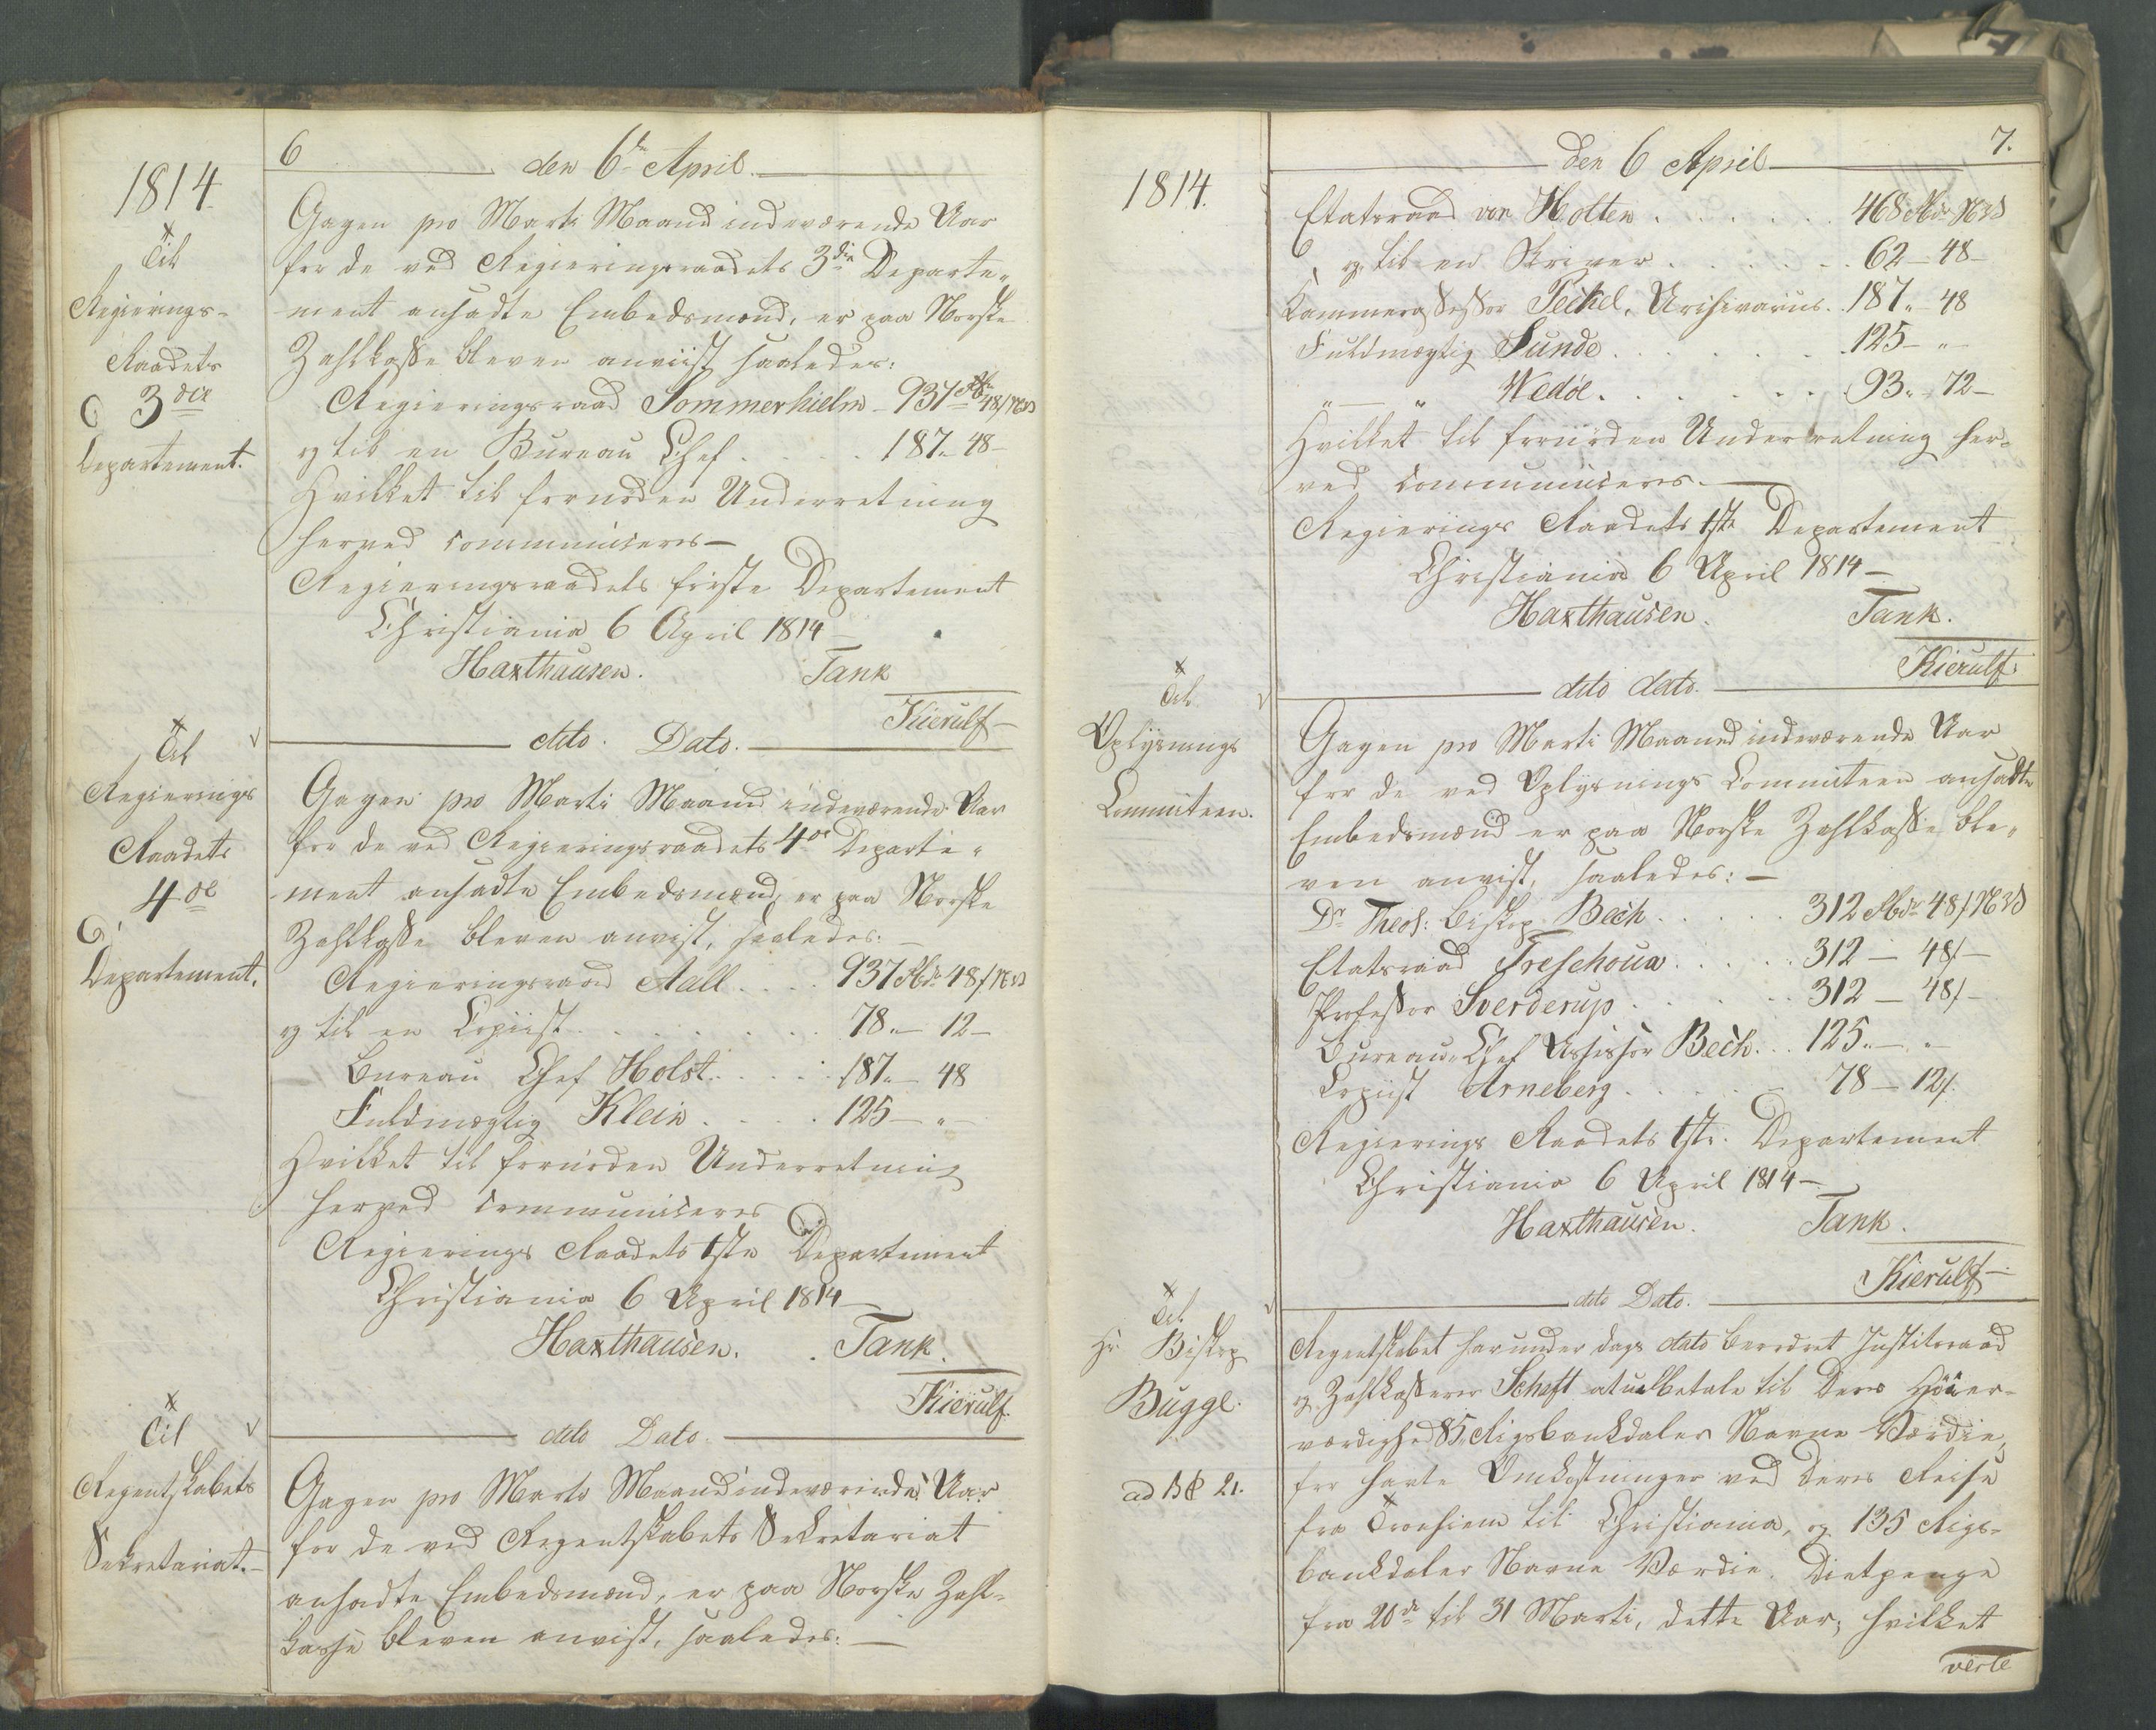 6
den 6te April.
1814.
Til
Regierings-
Raadets
3die
Departement.
Gagen pro Marti Maaned indeværende Aar
for de ved Regieringsraadets 3die Departe-
ment ansadte Embedsmænd, er paa Norske
Zahlkasse bleven anviist saaledes:
Regieringsraad Sommerhielm - 937 Rbd 48 s NV
og til en Bureau Chef . . . . 187 - 48 -
Hvilket til fornöden Underretning
herved communiceres -
Regieringsraadets förste Departement
Christiania 6 April 1814 -
Haxthausen. Tank
Kierulf -
dito Dato.
Til
Regierings
Raadets
4de
Departement.
Gagen pro Marti Maaned indeværende Aar
for de ved Regieringsraadets 4de Departe-
ment ansadte Embedsmænd, er paa Norske
Zahlkasse bleven anvist, saaledes: -
Regieringsraad Aall . . . . 937 Rbd 48 s NV
og til en Copiist . . . . . . . 78 - 12 -
Bureau Chef Holst . . . . . 187 - 48
Fuldmægtig Klein . . . . 125 - " -
Hvilket til fornöden Underretning
herved communiceres
Regierings Raadets 1ste Departement
Christiania 6 April 1814 -
Haxthausen. Tank.
Kierulf.
dito Dato
Til
Regentskabets
Sekretariat. -
Gagen pro Marts Maaned indeværende Aar
for de ved Regentskabets Sekretariat
ansadte Embedsmænd, er paa Norske Zahl-
kasse bleven anvist, saaledes: -
7.
den 6 April
1814.
Etatsraad von Holten . . . . . . 468 Rbd NV
og til en Skriver . . . . . . 62 - 48 -
Kammerassessor Teckel, Archivarius . 187 - 48
Fuldmægtig Sunde . . . . . . 125 - " -
" - " Wedöe . . . . . . 93 - 72 -
Hvilket til fornöden Underretning her-
ved communiceres. -
Regierings Raadets 1ste Departement
Christiania 6 April 1814 -
Haxthausen. Tank.
Kierulf.
dito dato.
Til
Oplysnings
Committeen.
Gagen pro Marti Maaned indeværende Aar
for de ved Oplysnings Committeen ansadte
Embedsmænd er paa Norske Zahlkasse ble-
ven anvist, saaledes: -
Dr Theol: Biskop Bech . . . . . 312 Rbd 48 s NV
Etatsraad Treschouw . . . . . 312 - 48 s -
Professor Sverderup . . . . . . 312 - 48 s -
Bureau Chef Assessor Bech . . . 125 - " -
Copiist Arneberg . . . . . . 78 - 12 s.
Regierings Raadets 1ste Departement
Christiania 6 April 1814 -
Haxthausen. Tank.
Kierulf -
dito Dato.
Til
Hr Biskop
Bugge.
ad B 21.
Regentskabet har under Dags dato beordret Justitsraad
og Zahlkasserer Scheft at udbetale til Deres Höiær-
værdighed 85 Rigsbankdaler Navne Værdie,
for havte Omkostninger ved Deres Reise
fra Tronhiem til Christiania, og 135 Rigs-
bankdaler Navne Værdie Dietpenge
fra 20de til 31 Marti, dette Aar, hvilket
verte